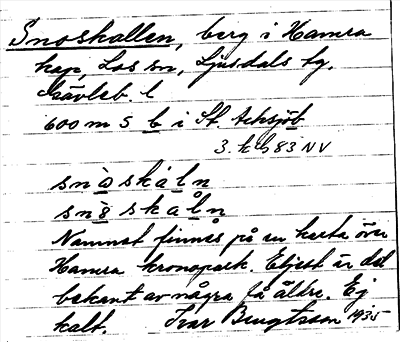 Snoskallen, berg i Hamra
kap, Los sn, Ljusdals tg.
Gävleb. l
600 m S b i St. Acksjöb
3. kbl 83 NV
snòskáln
snò̀skåln
Namnet finnes på en karta över
Hamra kronopark. Eljest är det
bekant av några få äldre. Ej
kalt. Ivar Bengtsson 1935